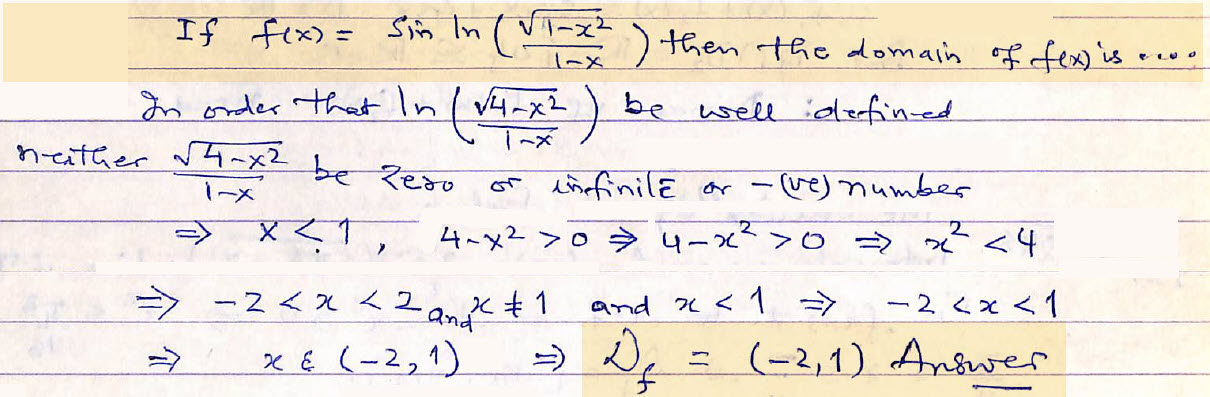 If f(x) = Sin ln (√1-x² / 1-x) then the domain of f(x) is ....
In order that ln (√4-x² / 1-x) be well defined
neither √4-x² / 1-x be zero or infinite or -(ve) number
⇒ x < 1, 4-x² > 0 ⇒ 4-x² > 0 ⇒ x² < 4
⇒ -2 < x < 2 and x ≠ 1 and x < 1 ⇒ -2 < x < 1
⇒ x ε (-2, 1) ⇒ D_f = (-2, 1) Answer